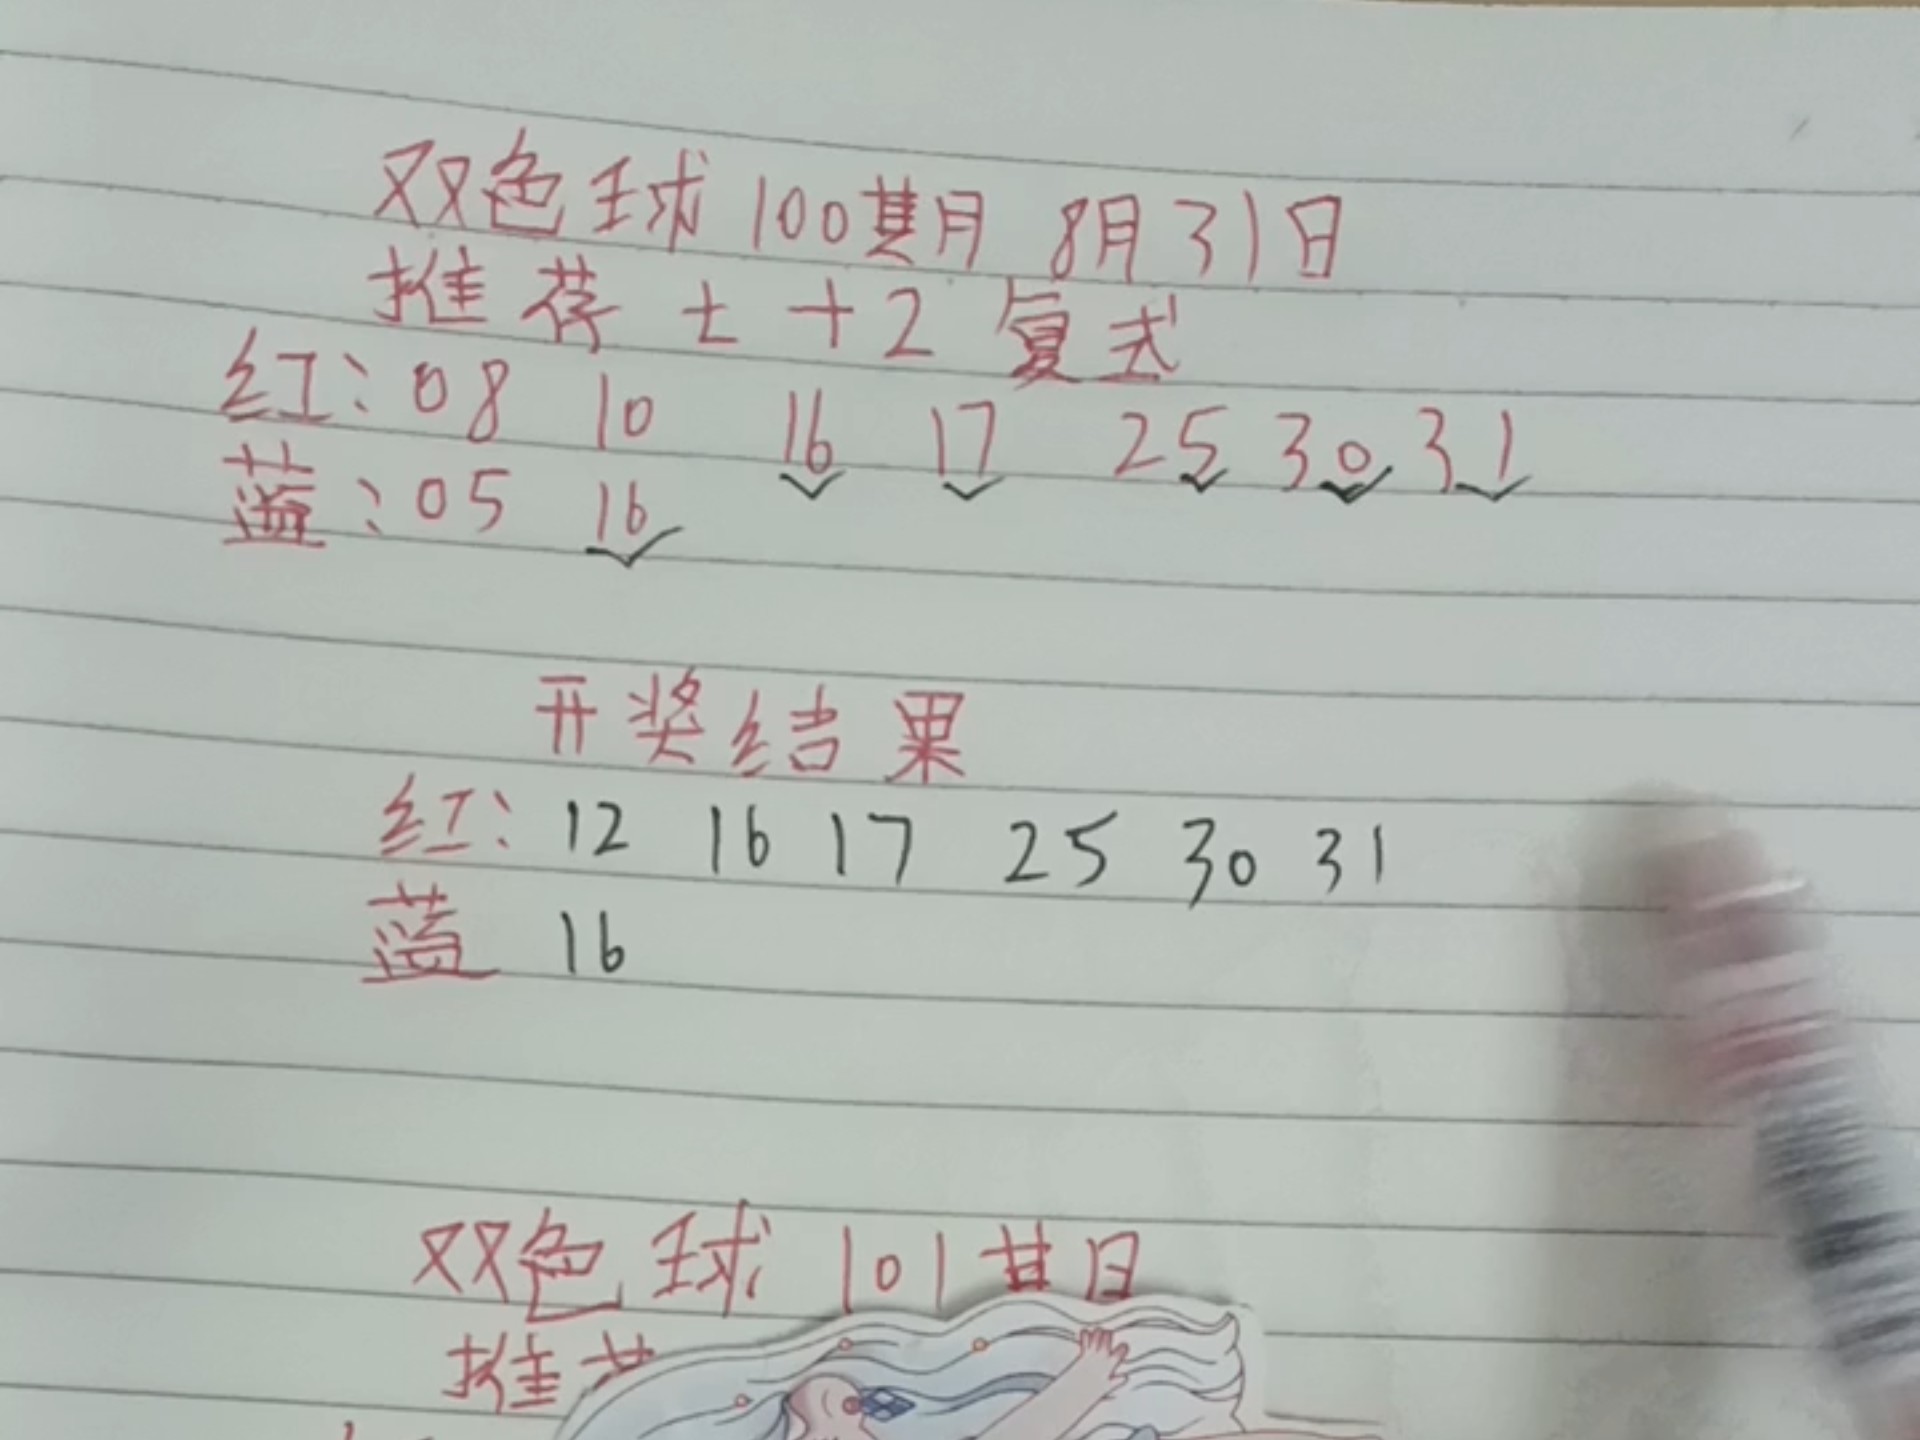 双色球100期 8月31日
推荐七+2复式
红:08 10 16 17 25 30 31
蓝:05 16
开奖结果
红:12 16 17 25 30 31
蓝 16
双色球101期
推